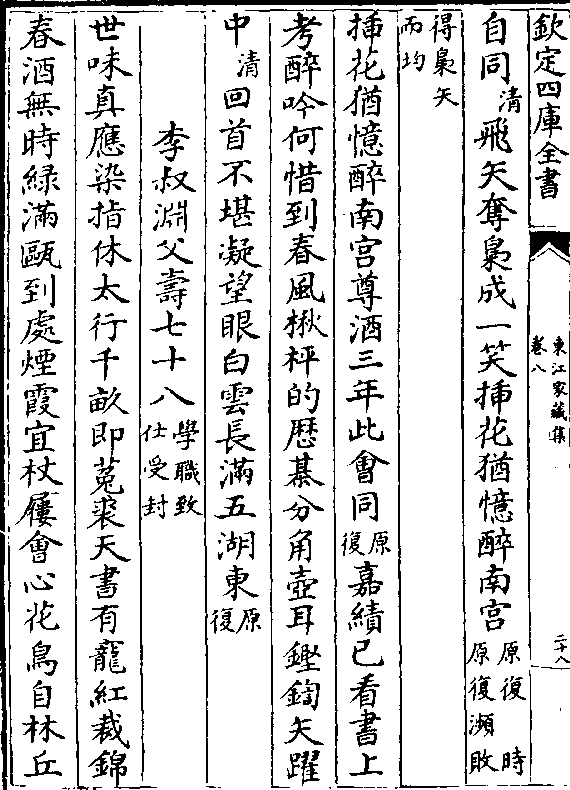 欽定四庫全書
東江家藏集
卷八
二十八
自同清飛矢奪梟成一笑挿花猶憶醉南宫原復時
原復瀕敗
得梟矢
而均
挿花猶憶醉南宫尊酒三年此㑹同原復嘉績已看書上
考醉吟何惜到春風楸枰的歴棊分角壺耳鏗鍧矢躍
中清回首不堪凝望眼白雲長滿五湖東原復
李叔淵父壽七十八學職致仕受封
世味真應染指休太行千畝即菟裘天書有寵紅裁錦
春酒無時緑滿甌到處煙霞宜杖屨㑹心花鳥自林丘